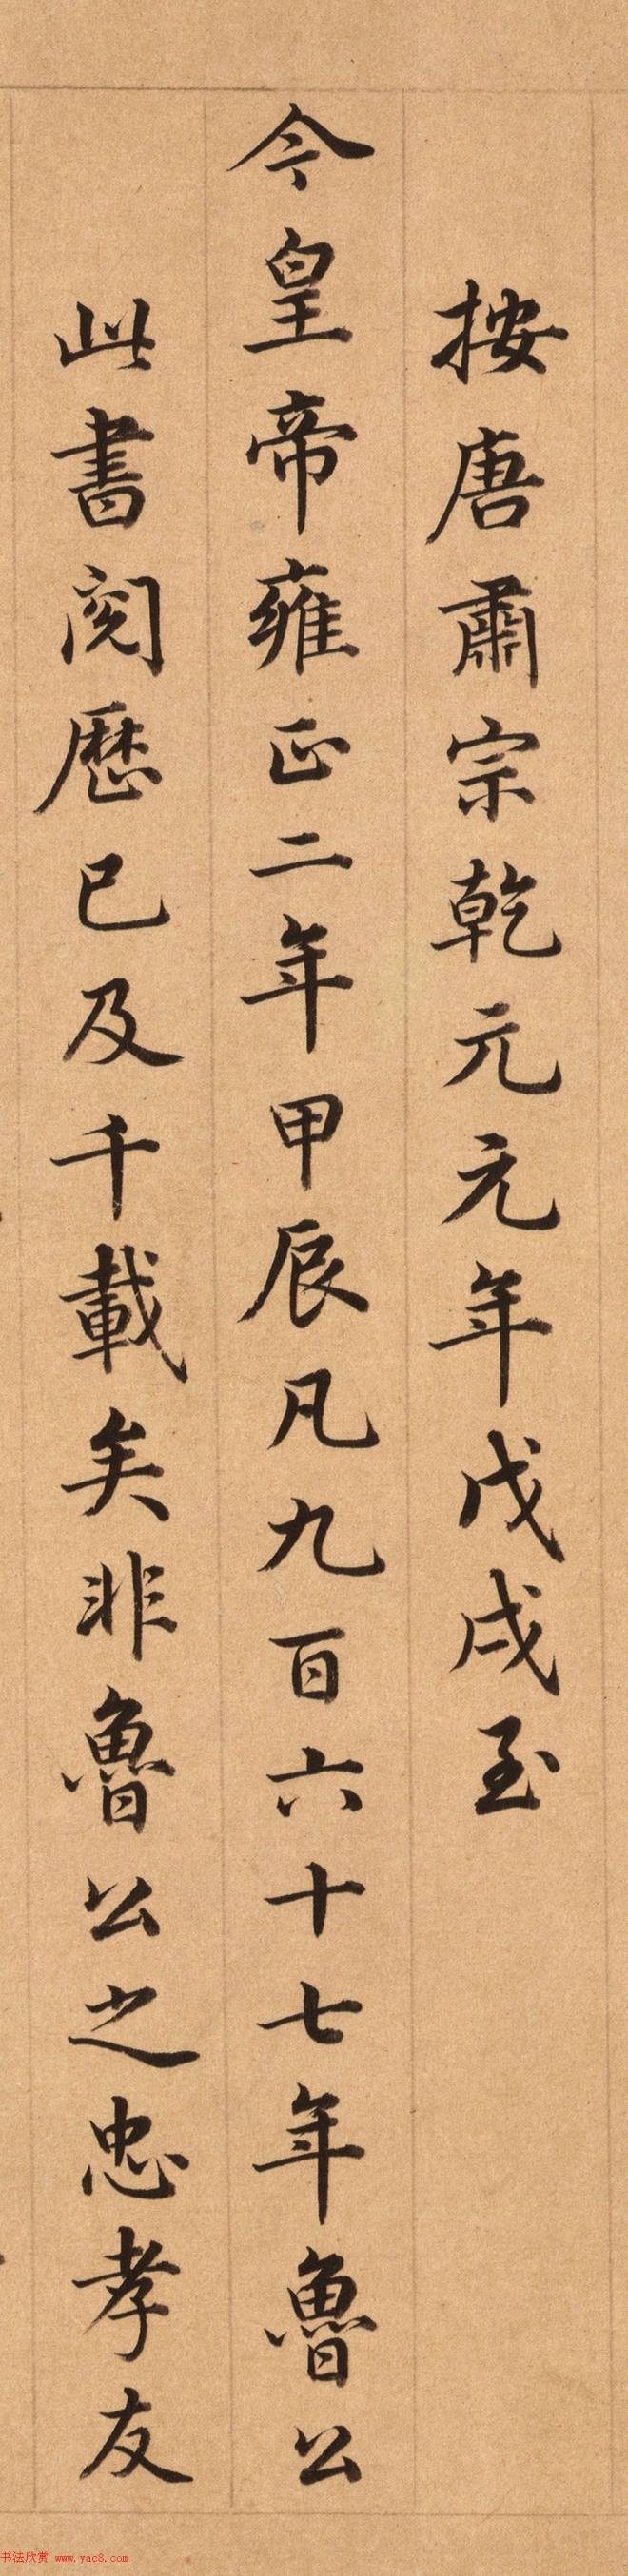 按唐肅宗乾元元年戊戌至
今皇帝雍正二年甲辰凡九百六十七年魯公
此書閱歷已及千載矣非魯公之忠孝友
书法欣赏 www.yac8.com